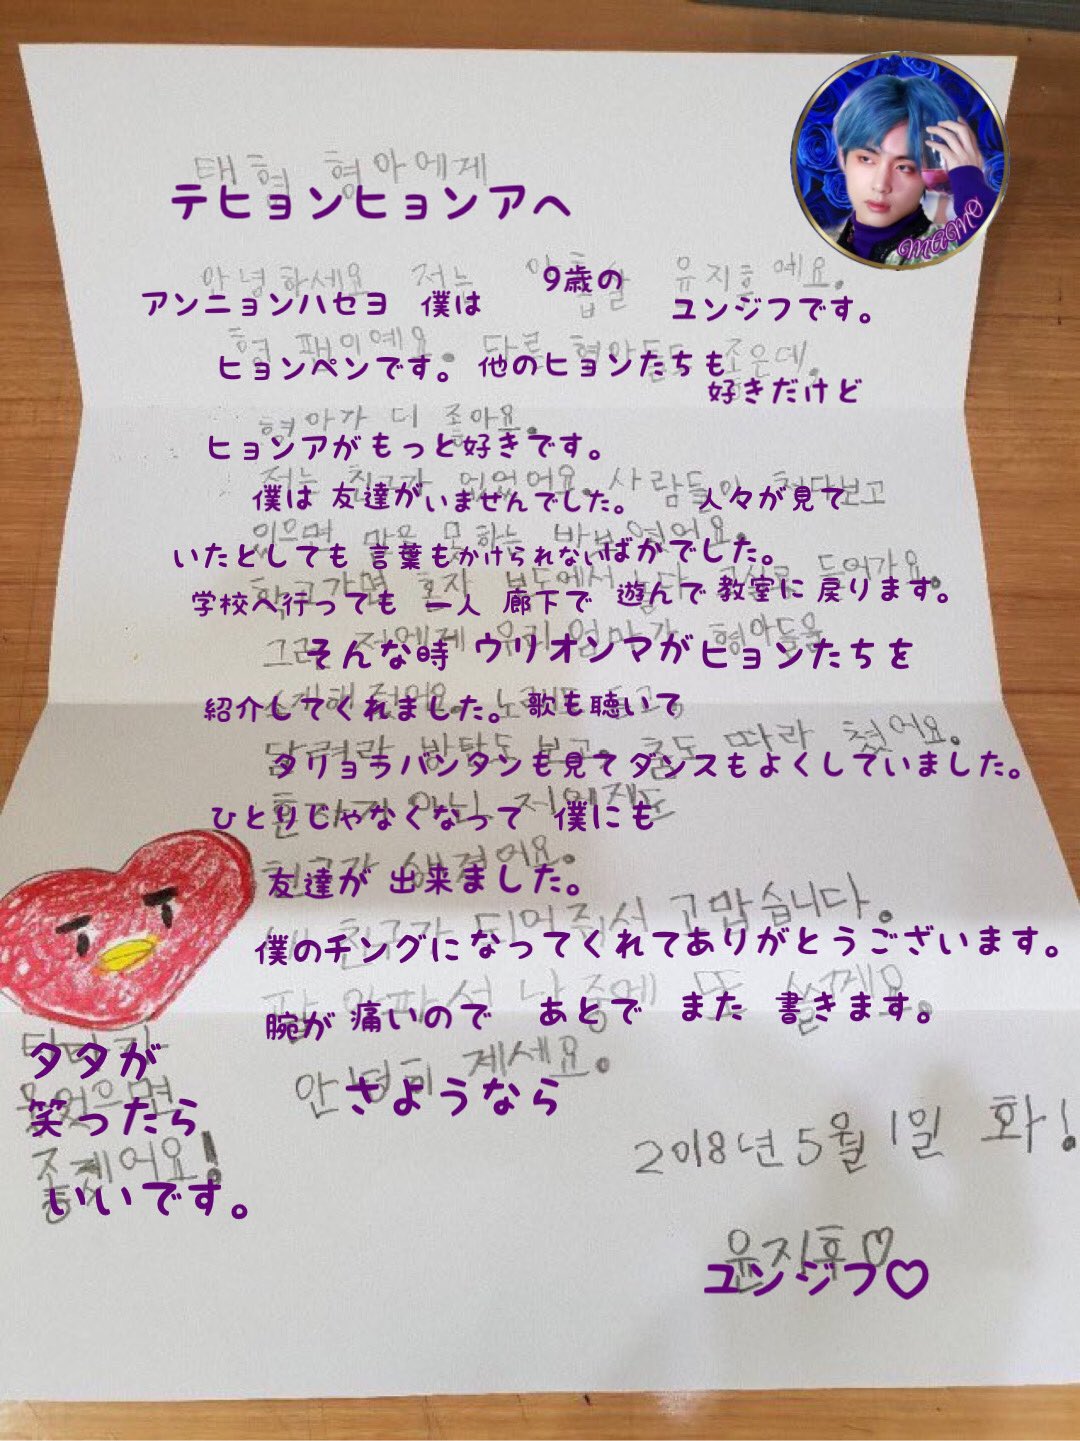 태형 형아에게
テヒョンヒョンアへ
MAMO
안녕하세요 저는 아홉살 윤지후예요.
アンニョンハセヨ 僕は 9歳の ユンジフです。
형 팬이예요. 다른 형아들도 좋은데,
ヒョンペンです。 他のヒョンたちも 好きだけど
형아가 더 좋아요.
ヒョンアがもっと好きです。
저는 친구가 없었어요. 사람들이 쳐다보고
僕は 友達がいませんでした。 人々が見て
있으면 말을 못하는 바보였어요.
いたとしても 言葉もかけられないばかでした。
학교가면 혼자 복도에서 놀다 교실로 들어가요.
学校へ行っても 一人 廊下で 遊んで教室に戻ります。
그런 저에게 우리 엄마가 형아들을
そんな時 ウリオンマがヒョンたちを
소개해줬어요. 노래도 듣고
紹介してくれました。歌も聴いて
달려라 방탄도 보고. 춤도 따라 췄어요.
タリョラバンタンも見てダンスもよくしていました。
혼자가 아닌 저에게도
ひとりじゃなくなって 僕にも
친구가 생겼어요.
友達が 出来ました。
내 친구가 되어줘서 고맙습니다.
僕のチングになってくれてありがとうございます。
팔 아파서 나중에 또 쓸게요.
腕が 痛いので あとで また 書きます。
안녕히 계세요.
さようなら
タタが
웃었으면
笑ったら
좋겠어요!
いいです。
2018년 5월 1일 화!
윤지후♡
ユンジフ♡